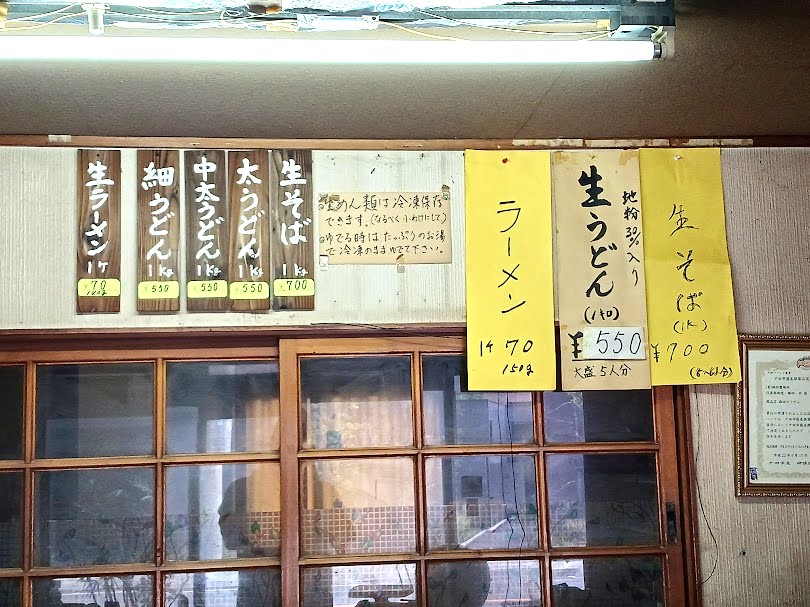 生ラーメン
1ケ
¥70
150g
細うどん
1Kg
¥550
中太うどん
1Kg
¥550
太うどん
1Kg
¥550
生そば
1Kg
¥700
生めん類は冷凍保存
できます。(なるべく小わけにして)
ゆでる時はたっぷりのお湯
で冷凍のままゆでて下さい。
ラーメン
1ケ 70
150g
地粉30%入り
生うどん
(1キロ)
¥550
大盛5人分
生そば
(1K)
¥700